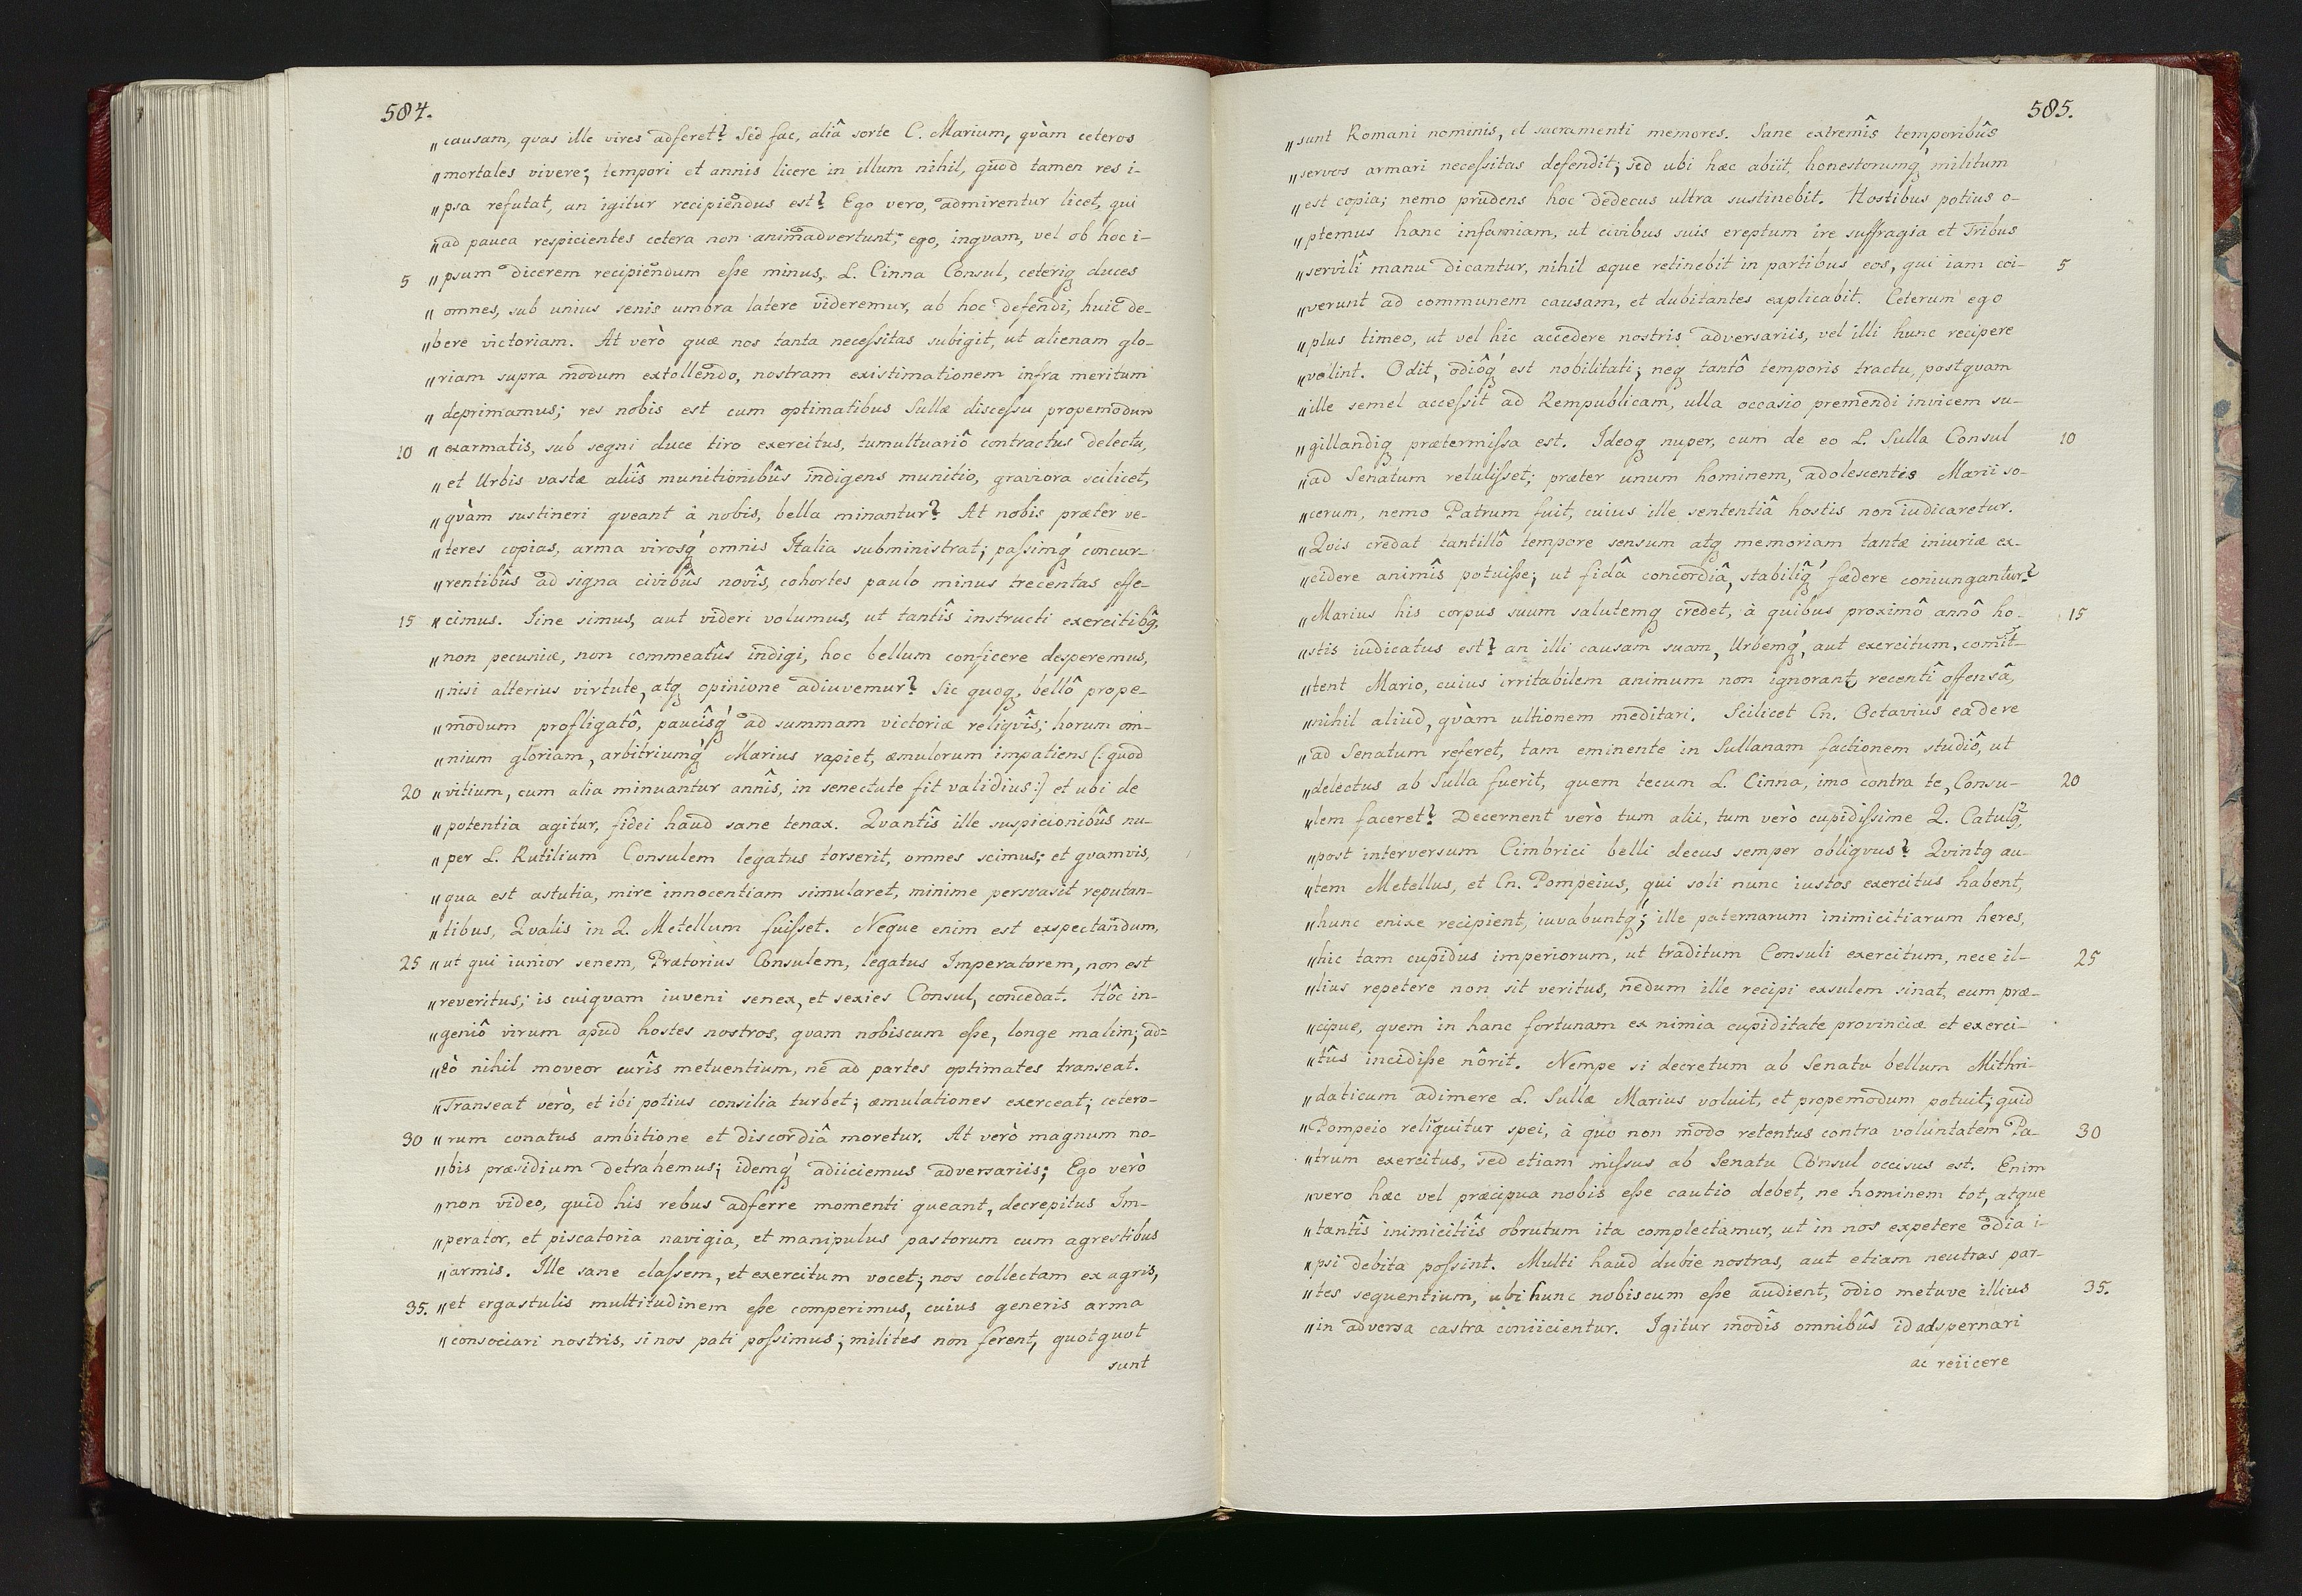 584.
„causam, quas ille vires adferet? Sed fac, aliâ sorte C. Marium, qvàm ceteros
„mortales vivere; tempori et annis licere in illum nihil, quod tamen res i-
„psa refutat, an igitur recipiendus est? Ego vero, admirentur licet, qui
„ad pauca respicientes cetera non animadvertunt; ego, inqvam, vel ob hoc i-
5 „psum dicerem recipiendum eſse minus, L. Cinna Consul, ceteriq duces
„omnes, sub unius senis umbra latere videremur, ab hoc defendi, huic de-
„bere victoriam. At verò quæ nos tanta neceſsitas subigit, ut alienam glo-
„riam supra modum extollendo, nostram existimationem infra meritum
„deprimamus; res nobis est cum optimatibus Sullæ disceſsu propemodum
10 „exarmatis, sub segni duce tiro exercitus, tumultuariô contractus delectu,
„et Urbis vastæ aliîs munitionibûs indigens munitio, graviora scilicet,
„qvàm sustineri qveant à nobis, bella minantur? At nobis præter ve-
„teres copias, arma virosq́ omnis Italia subministrat; paſsimq́ concur-
„rentibûs ad signa civibûs novîs, cohortes paulo minus trecentas effe-
15 „cimus. Iine simus, aut videri volumus, ut tantîs instructi exercitibq,
„non pecuniæ, non commeatûs indigi, hoc bellum conficere desperemus,
„nisi alterius virtute, atq opinione adiuvemur? Sic quoq, bellô prope-
„modum profligatô, paucîsq́ ad summam victoriæ reliqvîs; horum om-
„nium gloriam, arbitriumq́ Marius rapiet, æmulorum impatiens (: quod
20 „vitium, cum alia minuantur annîs, in senectute fit validius :) et ubi de
„potentia agitur, fidei haud sane tenax. Qvantîs ille suspicionibûs nu-
„per L. Rutilium Consulem legatus torserit, omnes scimus; et qvamvis,
„qua est astutia, mire innocentiam simularet, minime persvasit reputan-
„tibus, Qvalis in Q. Metellum fuiſset. Neque enim est exspectandum,
25 „ut qui iunior senem, Prætorius Consulem, legatus Imperatorem, non est
„reveritus; is cuiqvam iuveni senex, et sexies Consul, concedat. Hôc in-
„geniô virum apud hostes nostros, qvam nobiscum eſse, longe malim; ad=
„eò nihil moveor curîs metuentium, ne ad partes optimates transeat.
„Transeat verò, et ibi potius consilia turbet; æmulationes exerceat; cetero-
30 „rum conatus ambitione et discordiâ moretur. At verò magnum no-
„bis præsidium detrahemus; idemq́ adiiciemus adversariis; Ego verò
„non video, quid his rebus adferre momenti queant, decrepitus Im-
„perator, et piscatoria navigia, et manipulus pastorum cum agrestibus
„armis. Ille sane claſsem, et exercitum vocet; nos collectam ex agris,
35. „et ergastulis multitudinem eſse comperimus, cuius generis arma
„consociari nostris, si nos pati poſsimus; milites non ferent, quotquot
sunt
585.
„sunt Romani nominis, et sacramenti memores. Sane extremîs temporibûs
„servos armari neceſsitas defendit; sed ubi hæc abiit, honestorumq́ militum
„est copia; nemo prudens hoc dedecus ultra sustinebit. Hostibus potius o-
„ptemus hanc infamiam, ut civibus suis ereptum ire suffragia et Tribus
„servilî manu dicantur, nihil æque retinebit in partibus eos, qui iam coi- 5
„verunt ad communem causam, et dubitantes explicabit. Ceterum ego
„plus timeo, ut vel hic accedere nostris adversariis, vel illi hunc recipere
„velint. Odit, odiôq́ est nobilitati; neq tantô temporis tractu, postqvam
„ille semel acceſsit ad Rempublicam, ulla occasio premendi invicem su-
„gillandiq prætermiſsa est. Ideoq nuper, cum de eo L. Sulla Consul 10
„ad Senatum retuliſset; præter unum hominem, adolescentis Marii so-
„cerum, nemo Patrum fuit, cuius ille sententiâ hostis non iudicaretur.
„Qvis credat tantillô tempore sensum atq memoriam tantæ iniuriæ ex-
„cidere animîs potuiſse; ut fidâ concordiâ, stabiliq́ fædere coniungantur?
„Marius his corpus suum salutemq credet, à quibus proximô annô ho- 15
„stis iudicatus est? an illi causam suam, Urbemq́, aut exercitum, comit-
„tent Mario, cuius irritabilem animum non ignorant, recentî offensâ,
„nihil aliud, qvàm ultionem meditari. Scilicet Cn. Octavius ea de re
„ad Senatum referet, tam eminente in Sullanam factionem studiô, ut
„delectus ab Sulla fuerit, quem tecum L. Cinna, imo contra te, Consu- 20
„lem faceret? Decernent verò tum alii, tum verò cupidiſsime Q. Catulq,
„post interversum Cimbrici belli decus semper obliqvus? Qvintq au-
„tem Metellus, et Cn. Pompeius, qui soli nunc iustos exercitus habent,
„hunc enixe recipient, iuvabuntq́; ille paternarum inimicitiarum heres,
„hic tam cupidus imperiorum, ut traditum Consuli exercitum, nece il- 25
„lius repetere non sit veritus, nedum ille recipi exsulem sinat, eum præ-
„cipue, qvem in hanc fortunam ex nimia cupiditate provinciæ et exerci-
„tûs incidiſse nôrit. Nempe si decretum ab Senatu bellum Mithri-
„daticum adimere L. Sullæ Marius voluit, et propemodum potuit; quid
„Pompeio reliquitur spei, à quo non modo retentus contra voluntatem Pa- 30
„trum exercitus, sed etiam miſsus ab Senatu Consul occisus est. Enim
„vero hæc vel præcipua nobis eſse cautio debet, ne hominem tot, atque
„tantîs inimicitiîs obrutum ita complectamur, ut in nos expetere odia i-
„psi debita poſsint. Multi haud dubie nostras, aut etiam neutras par-
„tes sequentium, ubi hunc nobiscum eſse audient, odio metuve illius 35.
„in adversa castra coniicientur. Igitur modîs omnibûs id adspernari
ac reiicere